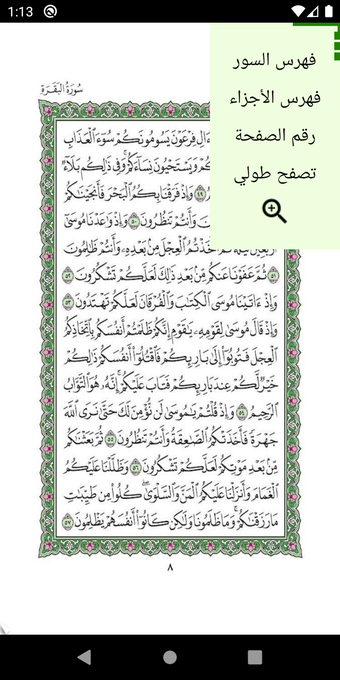 1:13
سُورَةُ البَقَرَةِ
فهرس السور
فهرس الأجزاء
رقم الصفحة
تصفح طولي
ءَالِ فِرْعَوْنَ يَسُومُونَكُمْ سُوٓءَ ٱلْعَذَابِ
وَيَسْتَحْيُونَ نِسَآءَكُمْ وَفِي ذَٰلِكُم بَلَآءٌ
٤٩ وَإِذْ فَرَقْنَا بِكُمُ ٱلْبَحْرَ فَأَنجَيْنَٰكُمْ
وَأَنتُمْ تَنظُرُونَ ٥٠ وَإِذْ وَٰعَدْنَا مُوسَىٰٓ
أَرْبَعِينَ لَيْلَةً ثُمَّ ٱتَّخَذْتُمُ ٱلْعِجْلَ مِنۢ بَعْدِهِۦ وَأَنتُمْ ظَٰلِمُونَ
٥١ ثُمَّ عَفَوْنَا عَنكُم مِّنۢ بَعْدِ ذَٰلِكَ لَعَلَّكُمْ تَشْكُرُونَ ٥٢
وَإِذْ ءَاتَيْنَا مُوسَى ٱلْكِتَٰبَ وَٱلْفُرْقَانَ لَعَلَّكُمْ تَهْتَدُونَ ٥٣
وَإِذْ قَالَ مُوسَىٰ لِقَوْمِهِۦ يَٰقَوْمِ إِنَّكُمْ ظَلَمْتُمْ أَنفُسَكُم بِٱتِّخَاذِكُمُ
ٱلْعِجْلَ فَتُوبُوٓا۟ إِلَىٰ بَارِئِكُمْ فَٱقْتُلُوٓا۟ أَنفُسَكُمْ ذَٰلِكُمْ
خَيْرٌ لَّكُمْ عِندَ بَارِئِكُمْ فَتَابَ عَلَيْكُمْ إِنَّهُۥ هُوَ ٱلتَّوَّابُ
ٱلرَّحِيمُ ٥٤ وَإِذْ قُلْتُمْ يَٰمُوسَىٰ لَن نُّؤْمِنَ لَكَ حَتَّىٰ نَرَى ٱللَّهَ
جَهْرَةً فَأَخَذَتْكُمُ ٱلصَّٰعِقَةُ وَأَنتُمْ تَنظُرُونَ ٥٥ ثُمَّ بَعَثْنَٰكُم
مِّنۢ بَعْدِ مَوْتِكُمْ لَعَلَّكُمْ تَشْكُرُونَ ٥٦ وَظَلَّلْنَا عَلَيْكُمُ
ٱلْغَمَامَ وَأَنزَلْنَا عَلَيْكُمُ ٱلْمَنَّ وَٱلسَّلْوَىٰ كُلُوا۟ مِن طَيِّبَٰتِ
مَا رَزَقْنَٰكُمْ وَمَا ظَلَمُونَا وَلَٰكِن كَانُوٓا۟ أَنفُسَهُمْ يَظْلِمُونَ ٥٧
٨